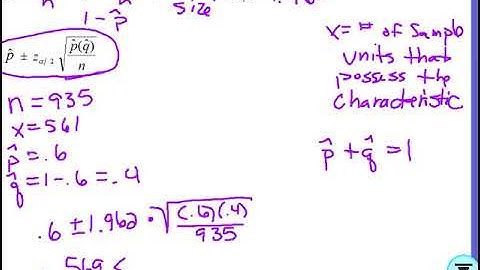 size
1 - p̂
x = # of Sample
units that
possess the
characteristic
p̂ ± z_{α/2} √(p̂(q̂)/n)
n = 935
x = 561
p̂ = .6
q̂ = 1 - .6 = .4
p̂ + q̂ = 1
.6 ± 1.96 · √((.6)(.4)/935)
.569 <